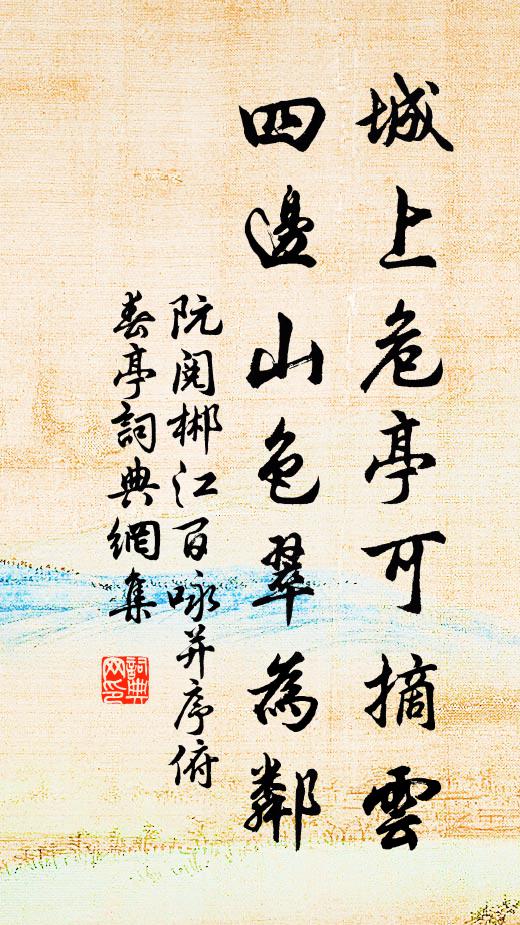 城上危亭可摘雲
四邊山色翠為鄰
阮閱郴江百咏并序俯
春亭詞典網集
詞典網印